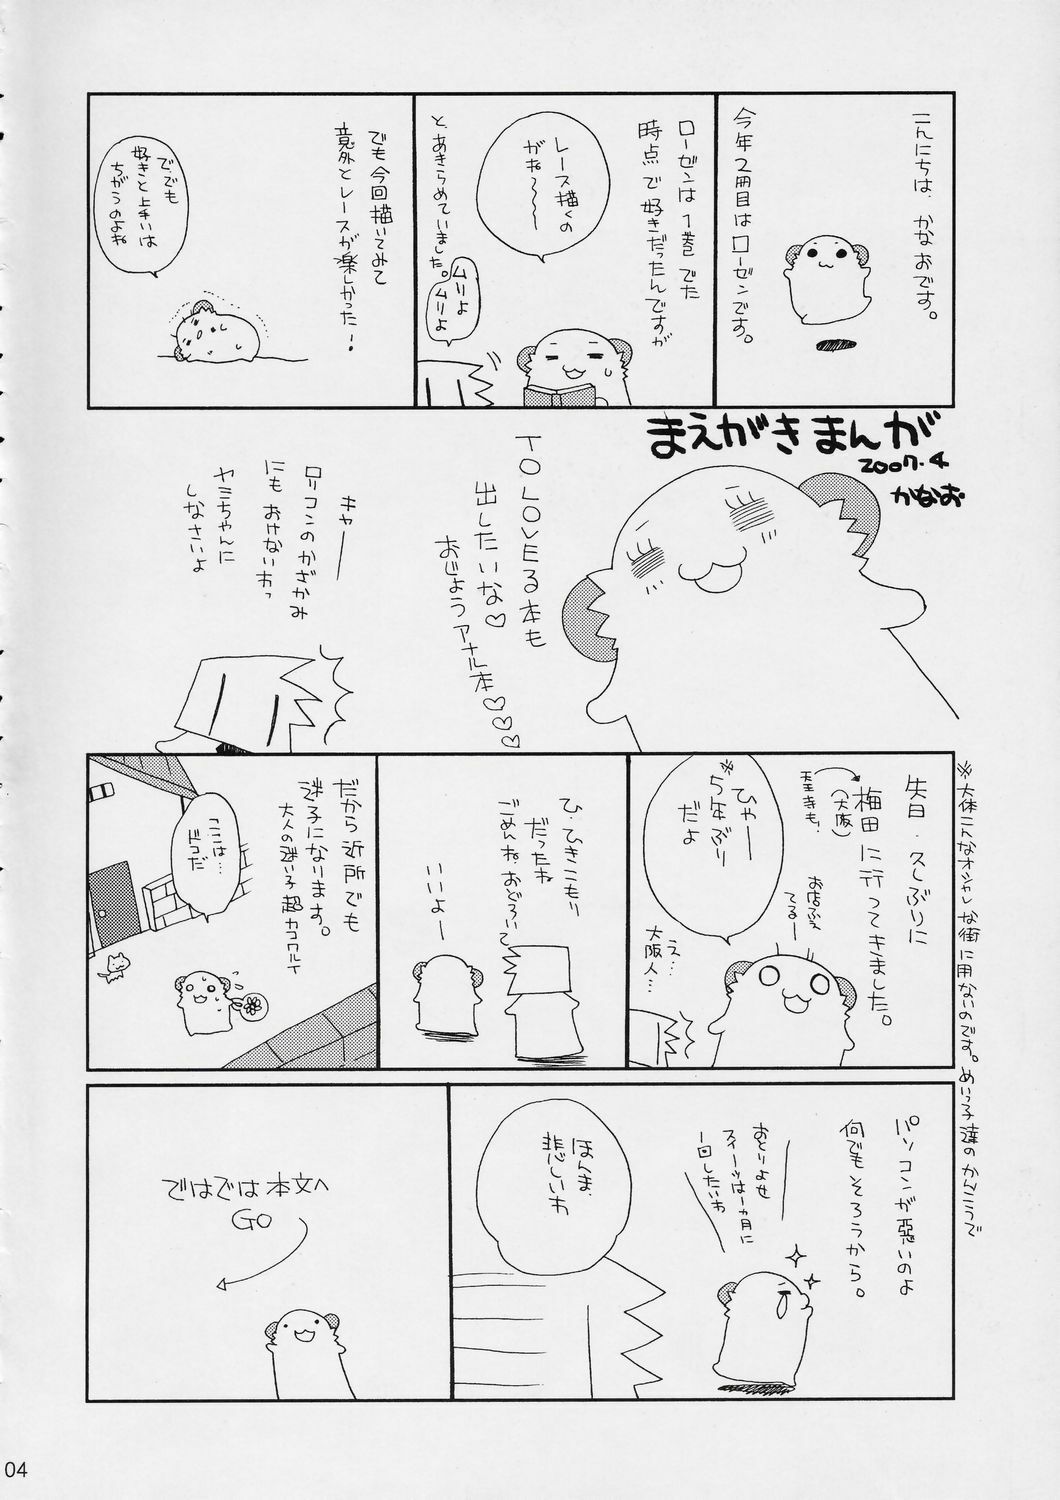 こんにちは、かなおです。
今年2冊目はローゼンです。
ローゼンは1巻でた
時点で好きだったんですが
レース描くの
がね〜〜〜
と、あきらめていました。
ムリよ
ムリよ
でも今回描いてみて
意外とレースが楽しかった!
で、でも
好きと上手いは
ちがうのよね
まえがきまんが
2007.4
かなお
TO LOVEる本も
出したいな♡
おじょうアナル本♡♡♡
キャー
ロリコンのかざかみ
にもおけないわっ
ヤミちゃんに
しなさいよ
※大体こんなオシャレな街に用ないのです。めいっ子達のかんこうで
先日、久しぶりに
梅田に行ってきました。
(大阪)
お店ふえ
てるー
ひゃー
※5年ぶり
だよ
え…
大阪人…
ひ、ひきこもり
だったね
ごめんねおどろいて
いいよー
だから近所でも
迷子になります。
大人の迷い子超カコワルイ
ここは…
ドコだ
パソコンが悪いのよ
何でもそろうから。
おとりよせ
スイーツは1ヵ月に
一回したいわ
ほんま、
悲しいわ
ではでは本文へ
GO
04